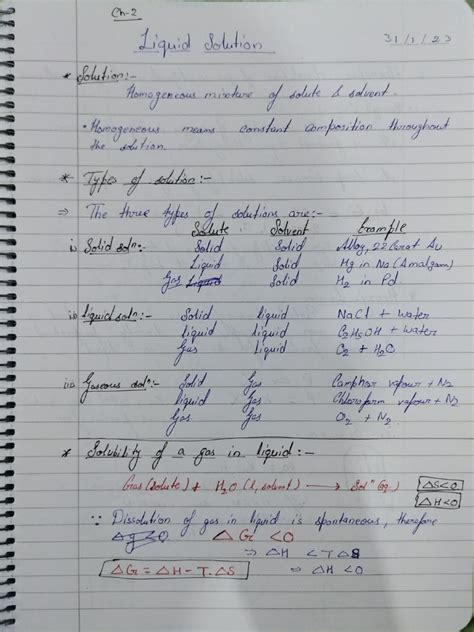 Ch-2
Liquid Solution 31/1/23
* Solution:-
Homogeneous mixture of solute & solvent.
• Homogeneous means constant composition throughout
the solution.
* Types of solution:-
⇒ The three types of solutions are:-
Solute Solvent Example
i) Solid soln:- Solid Solid Alloy, 22 Carat Au
Liquid Solid Hg in Na (Amalgam)
Gas Liquid Solid H2 in Pd
ii) Liquid soln:- Solid liquid NaCl + Water
liquid liquid C2H5OH + Water
Gas Liquid C2 + H2O
iii) Gaseous soln:- Solid Gas Camphor vapour + N2
liquid Gas Chloroform vapour + N2
Gas Gas O2 + N2
* Solubility of a gas in liquid:-
Gas (solute) + H2O (l, solvent) → Soln (aq.) ΔS<0
ΔH<0
∵ Dissolution of gas in liquid is spontaneous, therefore
Δg<0 ΔG <0
⇒ ΔH < TΔS
ΔG = ΔH - T.ΔS ⇒ ΔH <0